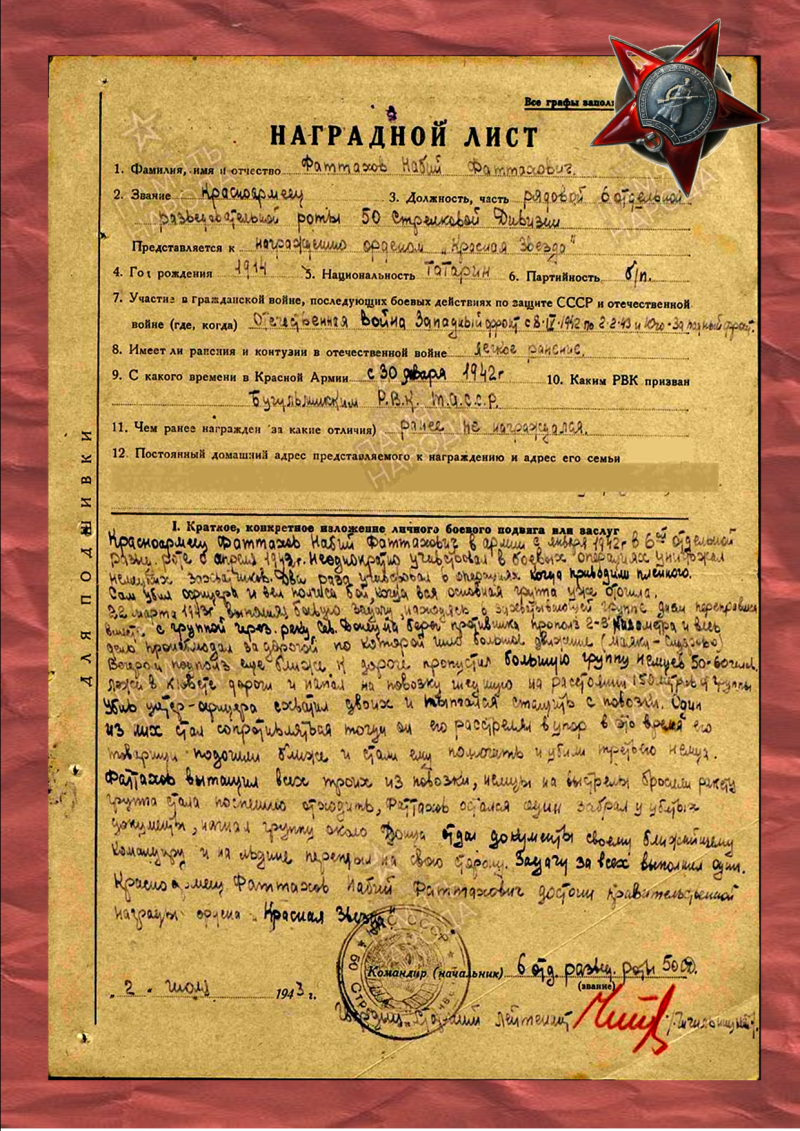 Все графы запол
НАГРАДНОЙ ЛИСТ
1. Фамилия, имя и отчество Фаттахов Набий Фаттахович.
2. Звание Красноармеец 3. Должность, часть рядовой 6 отдельной
разведовательной роты 50 Стрелковой Дивизии
Представляется к награждению орденом „Красная Звезда"
4. Год рождения 1914 5. Национальность Татарин 6. Партийность б/п.
7. Участие в гражданской войне, последующих боевых действиях по защите СССР и отечественной
войне (где, когда) Отечественная война Западный фронт с 8-IV-1942 по 2-2-43 и Юго-Западный фронт.
8. Имеет ли ранения и контузии в отечественной войне легкое ранение.
9. С какого времени в Красной Армии с 30 января 1942г 10. Каким РВК призван
Бугульминским Р.В.К. Т.А.С.С.Р.
11. Чем ранее награжден (за какие отличия) ранее не награждался.
12. Постоянный домашний адрес представляемого к награждению и адрес его семьи
ДЛЯ ПОДШИВКИ
I. Краткое, конкретное изложение личного боевого подвига или заслуг
Красноармеец Фаттахов Набий Фаттахович в армии с января 1942г в 6ой отдельной
развед. роте с апреля 1942г. Неоднократно участвовал в боевых операциях уничтожал
немецких захватчиков. Два раза участвовал в операциях когда приводили пленного.
Сам убил офицера и вел полчаса бой, когда вся основная группа уже отошла.
марта 1943г выполняя боевую задачу, находясь в захватывающей группе днем переправился
вместе с группой через реку Сев. Донец на берег противника прополз 2-3 километра и весь
день пронаблюдал за дорогой по которой шло большое движение (Маяки-
подполз еще ближе к дороге пропустил большую группу немцев 50-60 челов.
лежа в кювете дороги и напал на повозку идущую на расстоянии 150 метров от группы
Убив унтер-офицера схватил двоих и пытался стащить с повозки. Один
из них стал сопротивляться тогда он его расстрелял в упор в это время его
товарищи подошли ближе и стали ему помогать и убили третьего немца.
Фаттахов вытащил всех троих из повозки, немцы на выстрелы бросили ракету
группа стала поспешно отходить, Фаттахов остался один забрал у убитых
документы, нагнал группу около Донца отдал документы своему ближайшему
командиру и на льдине переплыл на свою сторону. Задачу за всех выполнил один.
Красноармеец Фаттахов Набий Фаттахович достоин правительственной
награды ордена „Красная Звезда"
Командир (начальник) 6 отд. развед. роты 50 сд.
(звание)
„2" июля 1943 г.
Гвардии Старший лейтенант